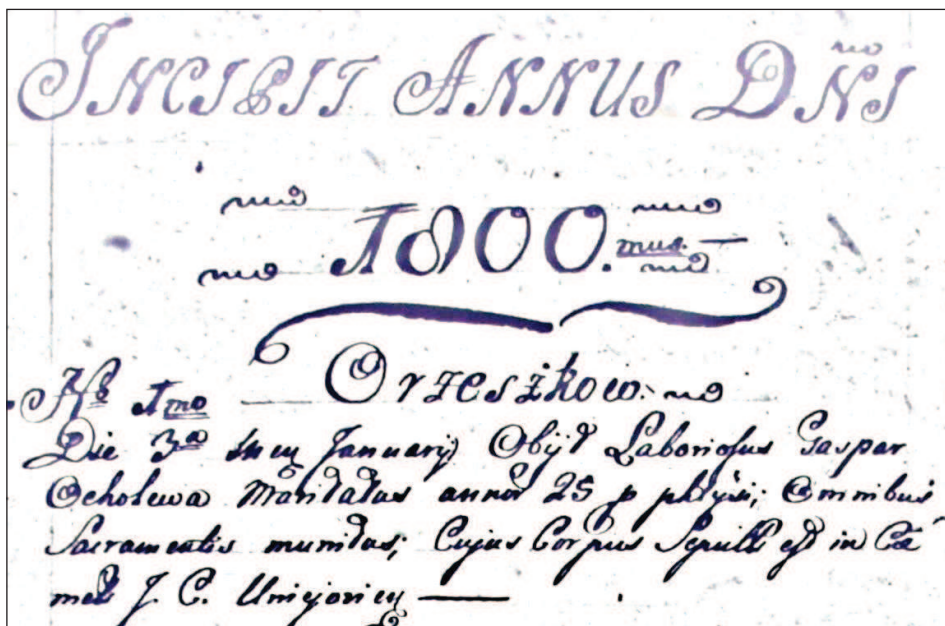 INCIPIT ANNUS DNI
1800. mus.
Nō 1mo Orzeszkow.
Die 3a Januarij Obijt Laboriosus Gaspar
Ocholewa Maridatus annor 25 p phtysi; Omnibus
Sacramentis munitus; Cujus Corpus Sepult est in Cæ
met J. C. Uniejovien